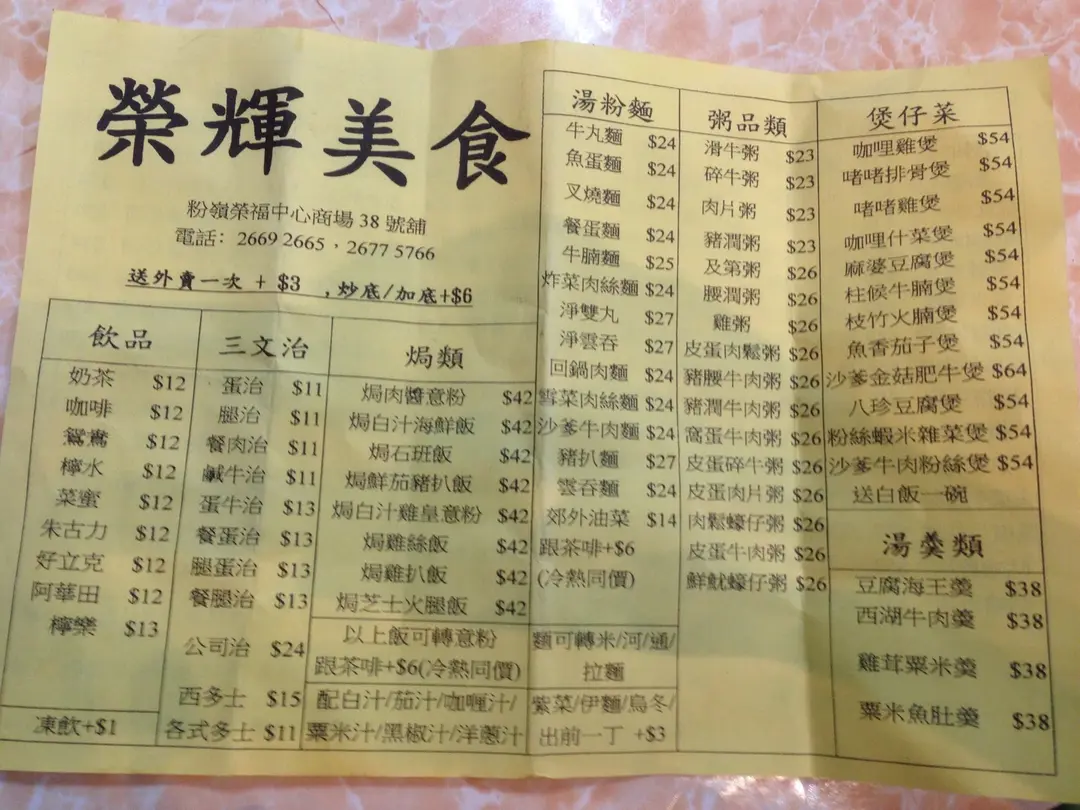 榮輝美食
粉嶺榮福中心商場 38 號舖
電話: 2669 2665，2677 5766
送外賣一次 + $3 ,炒底/加底+$6
飲品
奶茶 $12
咖啡 $12
鴛鴦 $12
檸水 $12
菜蜜 $12
朱古力 $12
好立克 $12
阿華田 $12
檸樂 $13
凍飲+$1
三文治
蛋治 $11
腿治 $11
餐肉治 $11
鹹牛治 $11
蛋牛治 $13
餐蛋治 $13
腿蛋治 $13
餐腿治 $13
公司治 $24
西多士 $15
各式多士 $11
焗類
焗肉醬意粉 $42
焗白汁海鮮飯 $42
焗石班飯 $42
焗鮮茄豬扒飯 $42
焗白汁雞皇意粉 $42
焗雞絲飯 $42
焗雞扒飯 $42
焗芝士火腿飯 $42
以上飯可轉意粉
跟茶啡+$6(冷熱同價)
配白汁/茄汁/咖喱汁/
粟米汁/黑椒汁/洋蔥汁
湯粉麵
牛丸麵 $24
魚蛋麵 $24
叉燒麵 $24
餐蛋麵 $24
牛腩麵 $25
炸菜肉絲麵 $24
淨雙丸 $27
淨雲吞 $27
回鍋肉麵 $24
雪菜肉絲麵 $24
沙爹牛肉麵 $24
豬扒麵 $27
雲吞麵 $24
郊外油菜 $14
跟茶啡+$6
(冷熱同價)
麵可轉米/河/通/
拉麵
紫菜/伊麵/烏冬/
出前一丁 +$3
粥品類
滑牛粥 $23
碎牛粥 $23
肉片粥 $23
豬潤粥 $23
及第粥 $26
腰潤粥 $26
雞粥 $26
皮蛋肉鬆粥 $26
豬腰牛肉粥 $26
豬潤牛肉粥 $26
窩蛋牛肉粥 $26
皮蛋碎牛粥 $26
皮蛋肉片粥 $26
肉鬆蠔仔粥 $26
皮蛋牛肉粥 $26
鮮魷蠔仔粥 $26
煲仔菜
咖哩雞煲 $54
啫啫排骨煲 $54
啫啫雞煲 $54
咖哩什菜煲 $54
麻婆豆腐煲 $54
柱候牛腩煲 $54
枝竹火腩煲 $54
魚香茄子煲 $54
沙爹金菇肥牛煲 $64
八珍豆腐煲 $54
粉絲蝦米雜菜煲 $54
沙爹牛肉粉絲煲 $54
送白飯一碗
湯羹類
豆腐海王羹 $38
西湖牛肉羹 $38
雞茸粟米羹 $38
粟米魚肚羹 $38